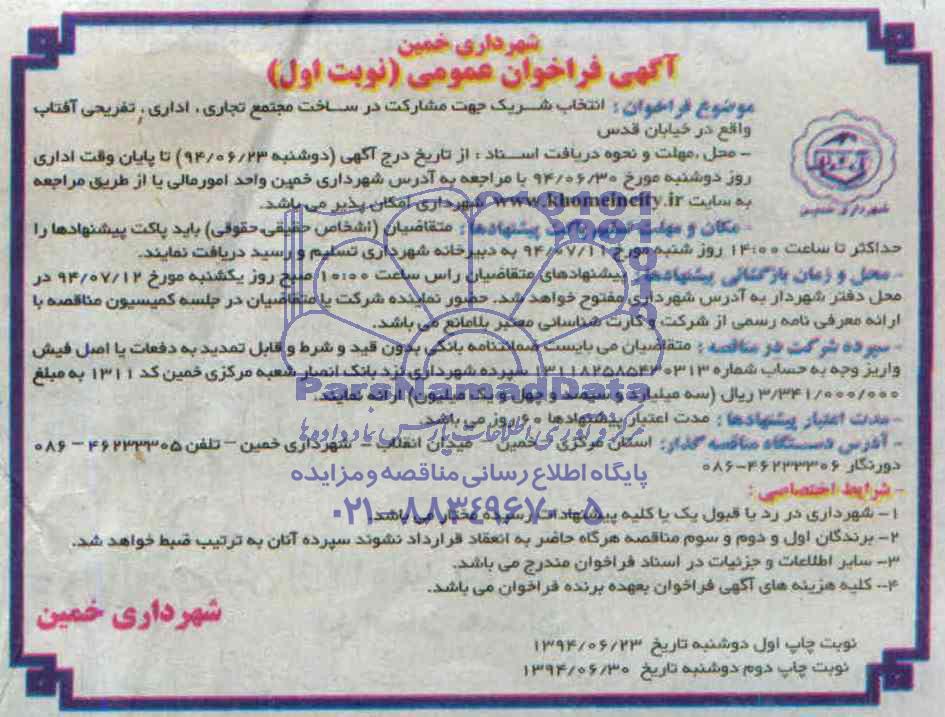 شهرداری خمین
آگهی فراخوان عمومی (نوبت اول)
موضوع فراخوان: انتخاب شریک جهت مشارکت در ساخت مجتمع تجاری، اداری، تفریحی آفتاب
واقع در خیابان قدس
شهرداری خمین
- محل، مهلت و نحوه دریافت اسناد: از تاریخ درج آگهی (دوشنبه ۹۴/۰۶/۲۳) تا پایان وقت اداری
روز دوشنبه مورخ ۹۴/۰۶/۳۰ با مراجعه به آدرس شهرداری خمین واحد امورمالی یا از طریق مراجعه
به سایت www.khomeincity.ir شهرداری امکان پذیر می باشد.
- مکان و مهلت پیشنهادها: متقاضیان (اشخاص حقیقی، حقوقی) باید پاکت پیشنهادها را
حداکثر تا ساعت ۱۴:۰۰ روز شنبه مورخ ۹۴/۰۷/۱۱ به دبیرخانه شهرداری تسلیم و رسید دریافت نمایند.
- محل و زمان بازگشائی پیشنهادها: پیشنهادهای متقاضیان راس ساعت ۱۰:۰۰ صبح روز یکشنبه مورخ ۹۴/۰۷/۱۲ در
محل دفتر شهردار به آدرس شهرداری مفتوح خواهد شد. حضور نماینده شرکت یا متقاضیان در جلسه کمیسیون مناقصه با
ارائه معرفی نامه رسمی از شرکت و کارت شناسائی معتبر بلامانع می باشد.
- سپرده شرکت در مناقصه: متقاضیان می بایست ضمانتنامه بانکی بدون قید و شرط و قابل تمدید به دفعات یا اصل فیش
واریز وجه به حساب شماره سپرده شهرداری نزد بانک انصار شعبه مرکزی خمین کد ۱۳۱۱ به مبلغ
۳/۳۴۱/۰۰۰/۰۰۰ ریال (سه میلیارد و سیصد و چهل و یک میلیون) ارائه نمایند.
- مدت اعتبار پیشنهادها: مدت اعتبار پیشنهادها ۶۰ روز می باشد.
- آدرس دستگاه مناقصه گذار: استان مرکزی - خمین - میدان انقلاب - شهرداری خمین - تلفن ۴۶۲۳۳۳۰۵ - ۰۸۶
دورنگار ۴۶۲۳۳۳۰۶-۰۸۶
- شرایط اختصاصی:
۱- شهرداری در رد یا قبول یک یا کلیه پیشنهادات رسیده مختار می باشد.
۲- برندگان اول و دوم و سوم مناقصه هرگاه حاضر به انعقاد قرارداد نشوند سپرده آنان به ترتیب ضبط خواهد شد.
۳- سایر اطلاعات و جزئیات در اسناد فراخوان مندرج می باشد.
۴- کلیه هزینه های آگهی فراخوان بعهده برنده فراخوان می باشد.
شهرداری خمین
نوبت چاپ اول دوشنبه تاریخ ۱۳۹۴/۰۶/۲۳
نوبت چاپ دوم دوشنبه تاریخ ۱۳۹۴/۰۶/۳۰
ParsNamadData
پایگاه اطلاع رسانی مناقصه و مزایده
۰۲۱-۸۸۳۴۹۶۷۰-۵